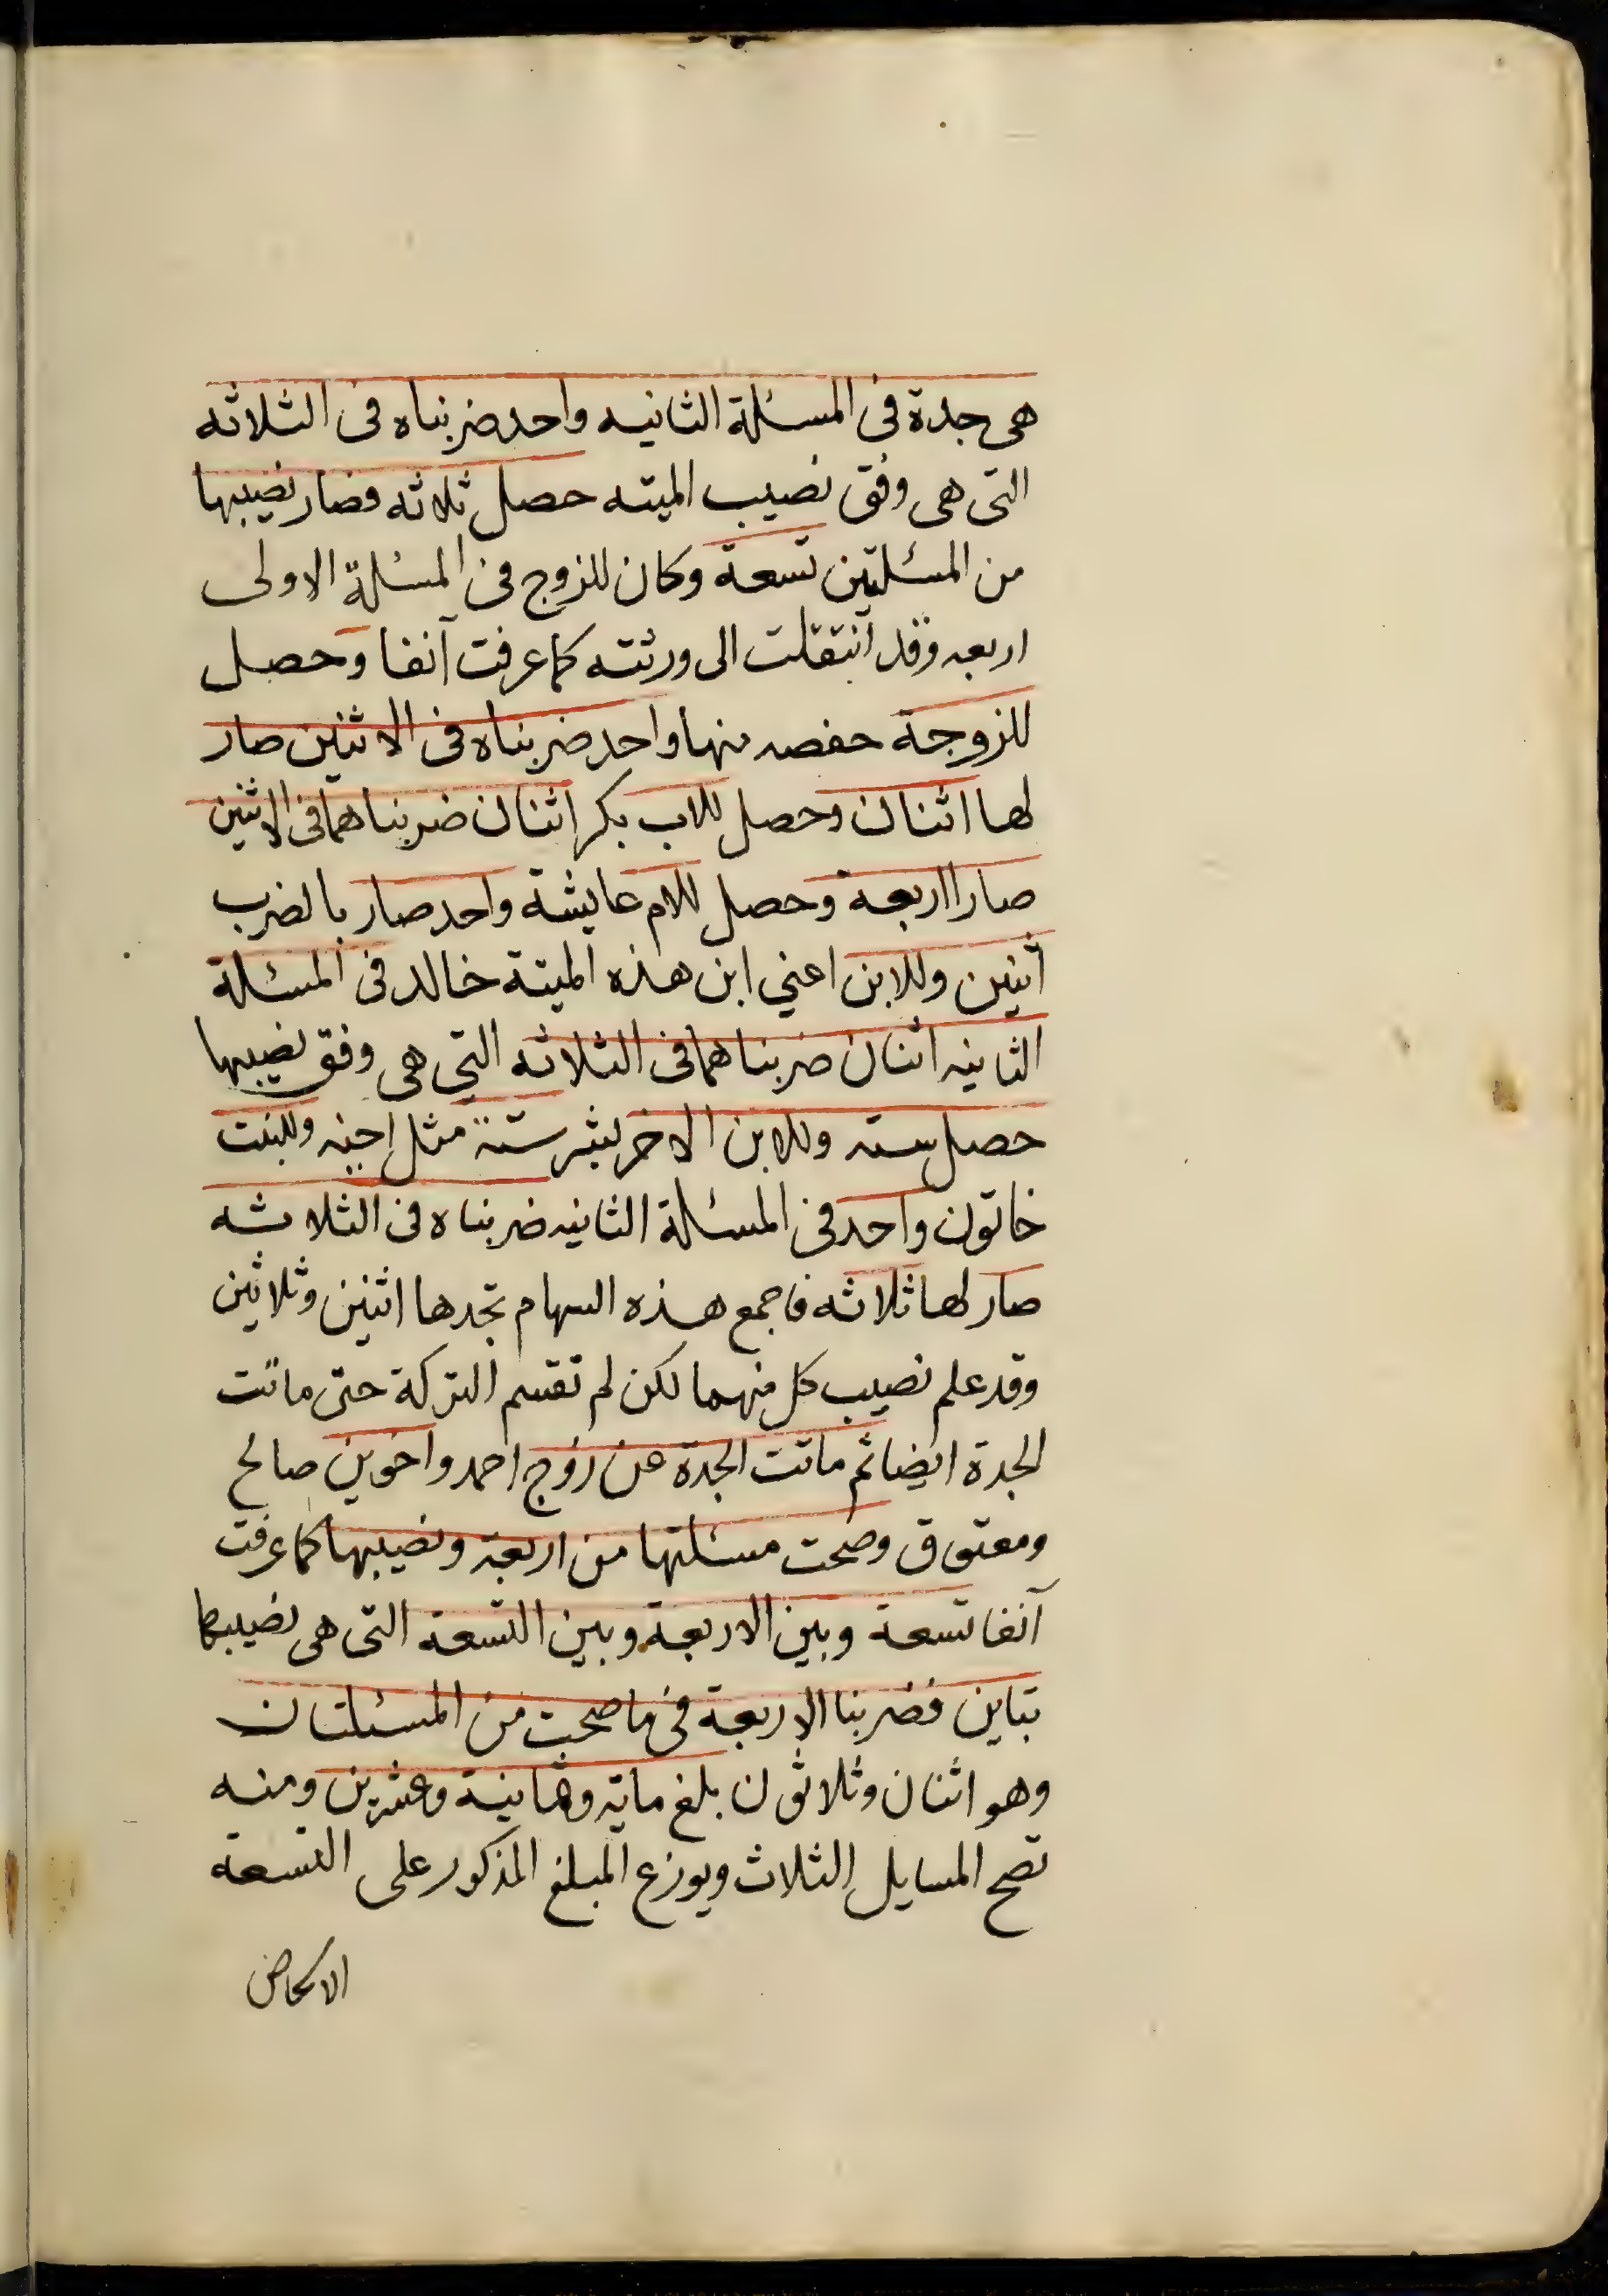 هى جدة فى المسئلة الثانيه واحد ضربناه فى الثلاثه
التى هى وفق نصيب الميته حصل ثلاثه فصار نصيبها
من المسئلتين تسعة وكان للزوج فى المسئلة الاولى
اربعه وقد آنتقلت الى ورثته كما عرفت آنفا وحصل
للزوجة حفصه منها واحد ضربناه فى الاثنين صار
لها اثنان وحصل للاب بكر اثنان ضربناهما فى الاثنين
صارا اربعة وحصل للام عايشة واحد صار بالضرب
أثنين وللابن اعني ابن هذه الميتة خالد فى المسئلة
الثانيه اثنان ضربناهما فى الثلاثه التي هى وفق نصيبها
حصل سته وللابن الاخر بشر ستة مثل اخيه وللبنت
خاتون واحد فى المسئلة الثانيه ضربناه فى الثلاثه
صار لها ثلاثه فاجمع هذه السهام تجدها اثنين وثلاثين
وقد علم نصيب كل منهما لكن لم تقسم التركة حتى ماتت
الجدة ايضا ثم ماتت الجدة عن زوج احمد واخوين صالح
ومعتوق وصحت مسئلتها من اربعة ونصيبها كما عرفت
آنفا تسعة وبين الاربعة وبين التسعة التى هى نصيبها
تباين فضربنا الاربعة فى ما صحت من المسئلتان
وهو اثنان وثلاثون بلغ ماية وثمانية وعشرين ومنه
تصح المسايل الثلاث ويوزع المبلغ المذكور على التسعة